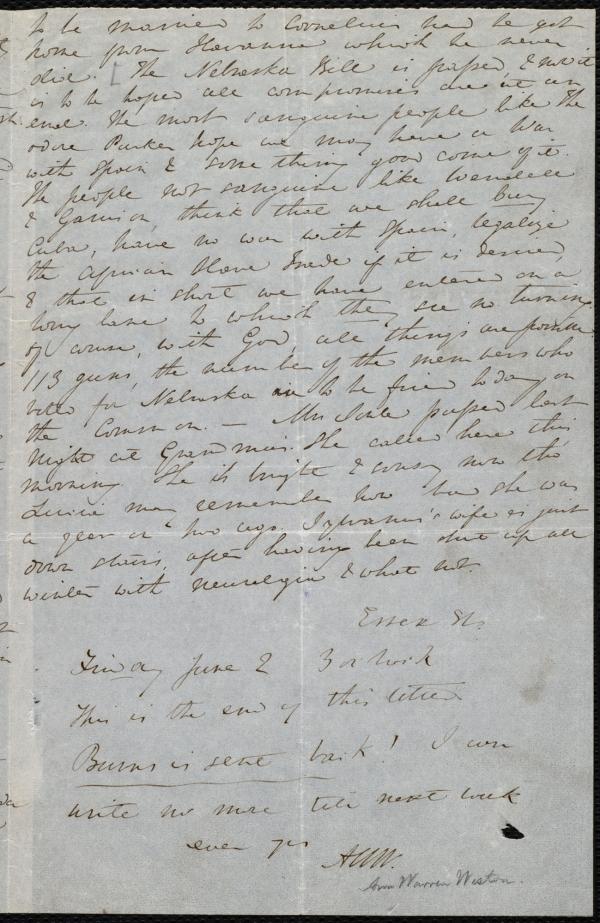 to be married to Cornelius had he got
home from Havanna which he never
did. [ The Nebraska Bill is passed & now it
is to be hoped all compromises are at an
end. The most sanguine people like Theo
odore Parker hope we may have a War
with Spain & some thing good come of it.
The people not sanguine like Wendell
& Garrison, think that we shall buy
Cuba, have no war with Spain, legalize
the African Slave Trade if it is desired,
& that in short we have entered on a
long lane to which they see no turning.
Of course, with God, all things are possible.
113 guns, the number of the members who
voted for Nebraska is to be fired to day on
the Common. — Mrs passed last
night at Grandma's. She called here this
morning. She is bright & cousy now tho'
Lizzie may remember how she was
a year or two ago. Sylvanus's wife is just
down stairs, after having been shut up all
winter with neuralgia & what not.
Essex St.
Friday June 2 3 o'clock
This is the end of this letter
Burns is sent back! I can
write no more till next week
ever yrs
AWW.
Ann Warren Weston.